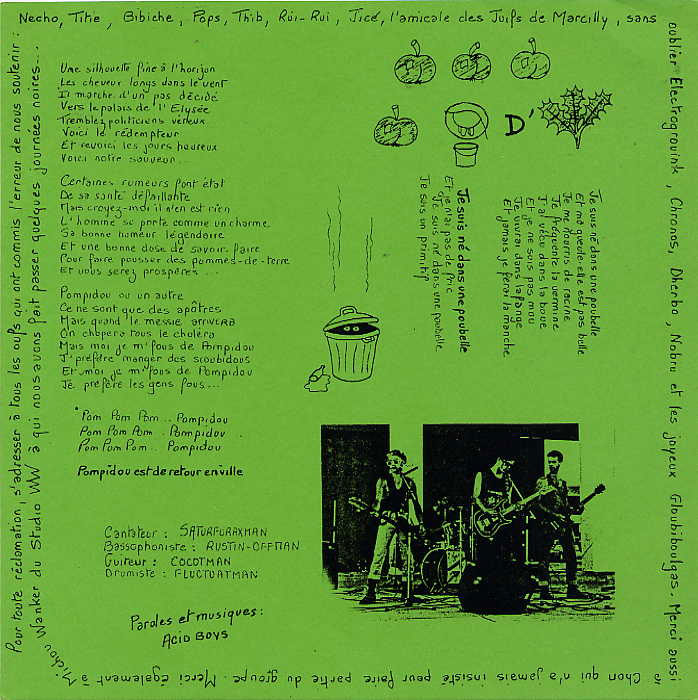 Pour toute réclamation, s'adresser à tous les oufs qui ont commis l'erreur de nous soutenir :
Necho, Titie, Bibiche, Pops, Thib, Rui-Rui, Jicé, l'amicale des Juifs de Marcilly, sans
oublier Electrogrouink, Chronos, Dherbo, Nobru et les joyeux Gloubiboulgas. Merci aussi
à Chon qui n'a jamais insisté pour faire partie du groupe. Merci également à
Michou Wanker du Studio WW à qui nous avons fait passer quelques journées noires...
Une silhouette fine à l'horizon
Les cheveux longs dans le vent
Il marche d'un pas décidé
Vers le palais de l'Elysée
Tremblez politiciens véreux
Voici le rédempteur
Et revoici les jours heureux
Voici notre sauveur...
Certaines rumeurs font état
De sa santé défaillante
Mais croyez-moi il n'en est rien
L'homme se porte comme un charme
Sa bonne humeur légendaire
Et une bonne dose de savoir-faire
Pour faire pousser des pommes-de-terre
Et vous serez prospères...
Pompidou ou un autre
Ce ne sont que des apôtres
Mais quand le messie arrivera
On chopera tous le choléra
Mais moi je m'fous de Pompidou
J'préfère manger des scoubidous
Et moi je m'fous de Pompidou
Je préfère les gens fous...
Pom Pom Pom.. Pompidou
Pom Pom Pom.. Pompidou
Pom Pom Pom.. Pompidou
Pompidou est de retour en ville
D'
Je suis né dans une poubelle
Et ma gueule elle est pas belle
Je me nourris de racine
Je fréquente la vermine
J'ai vécu dans la boue
Et je ne suis pas mou
Je vivrai dans la fange
Et jamais je ferai la manche
Je suis né dans une poubelle
Et je n'ai pas de fric
Je suis né dans une poubelle
Je suis un primitif
Cantateur : SATURFURAXMAN
Bassophoniste : RUSTIN-OFFMAN
Guiteur : COCOTMAN
Drumiste : FLUCTUATMAN
Paroles et musiques :
ACID BOYS